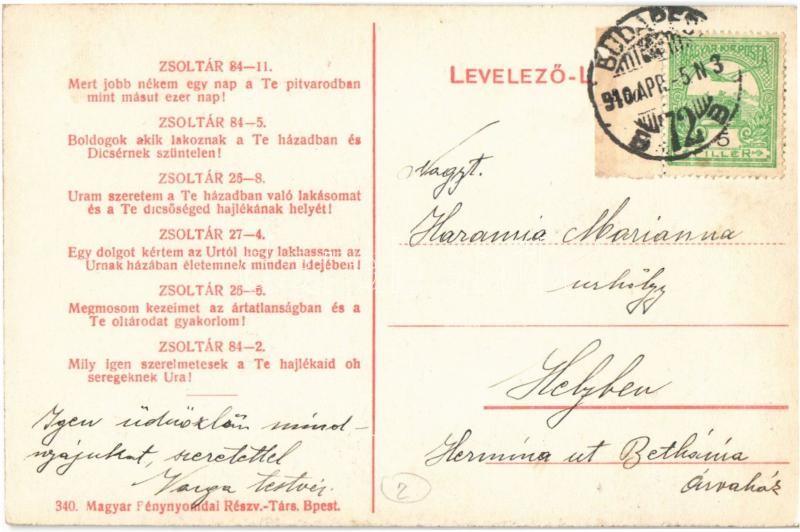 ZSOLTÁR 84—11.
Mert jobb nékem egy nap a Te pitvarodban
mint másut ezer nap!
ZSOLTÁR 84—5.
Boldogok akik lakoznak a Te házadban és
Dicsérnek szüntelen!
ZSOLTÁR 26—8.
Uram szeretem a Te házadban való lakásomat
és a Te dicsőséged hajlékának helyét!
ZSOLTÁR 27—4.
Egy dolgot kértem az Urtól hogy lakhassam az
Urnak házában életemnek minden idejében!
ZSOLTÁR 26—6.
Megmosom kezeimet az ártatlanságban és a
Te oltárodat gyakorlom!
ZSOLTÁR 84—2.
Mily igen szerelmetesek a Te hajlékaid oh
seregeknek Ura!
Igen üdvözlöm mind-
nyájukat, szeretettel
Varga testvér
340. Magyar Fénynyomdai Részv.-Társ. Bpest.
LEVELEZŐ-L
BUDAPEST
910 APR.-5 N 3
72
MAGYAR KIR. POSTA
5
FILLÉR
Nagyt.
Haramia Marianna
urhölgy
Helyben
Hermina ut Bethánia
Árvaház
2